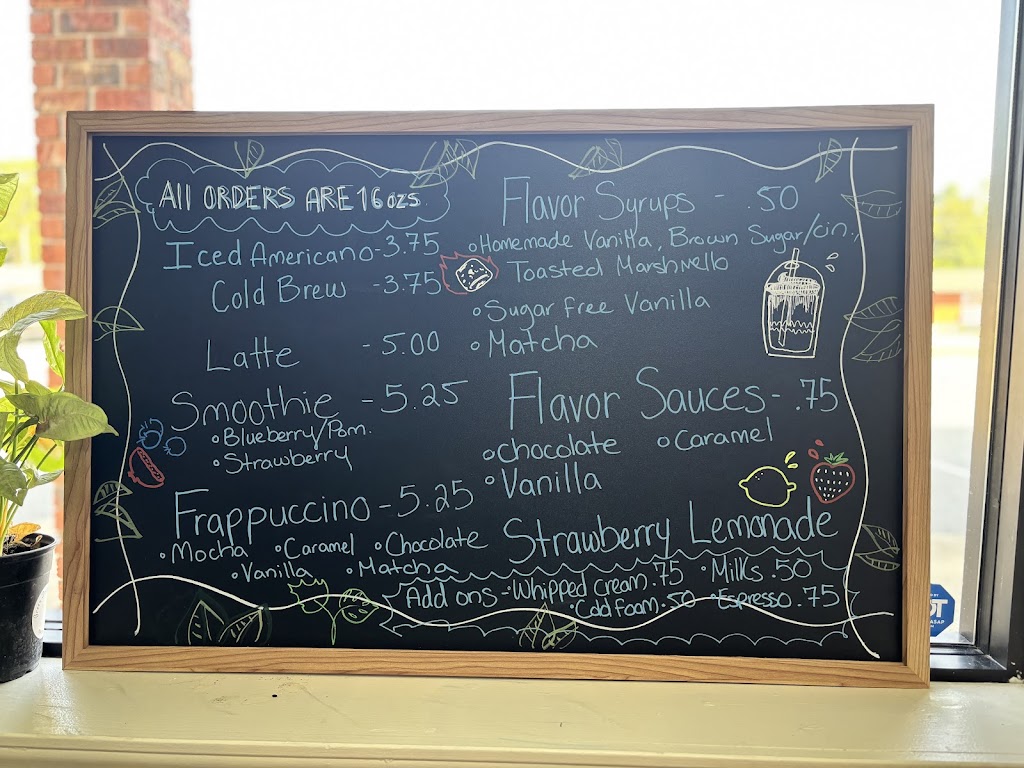 All ORDERS ARE 16 ozs
Iced Americano - 3.75
Cold Brew - 3.75
Latte - 5.00
Smoothie - 5.25
• Blueberry/Pom.
• Strawberry
Frappuccino - 5.25
• Mocha • Caramel • Chocolate
• Vanilla • Matcha
Flavor Syrups - .50
• Homemade Vanilla, Brown Sugar/cin.,
Toasted Marshmello
• Sugar free Vanilla
• Matcha
Flavor Sauces - .75
• chocolate • Caramel
• Vanilla
Strawberry Lemonade
Add ons - • Whipped Cream .75 • Milks .50
• Cold foam .50 • Espresso .75